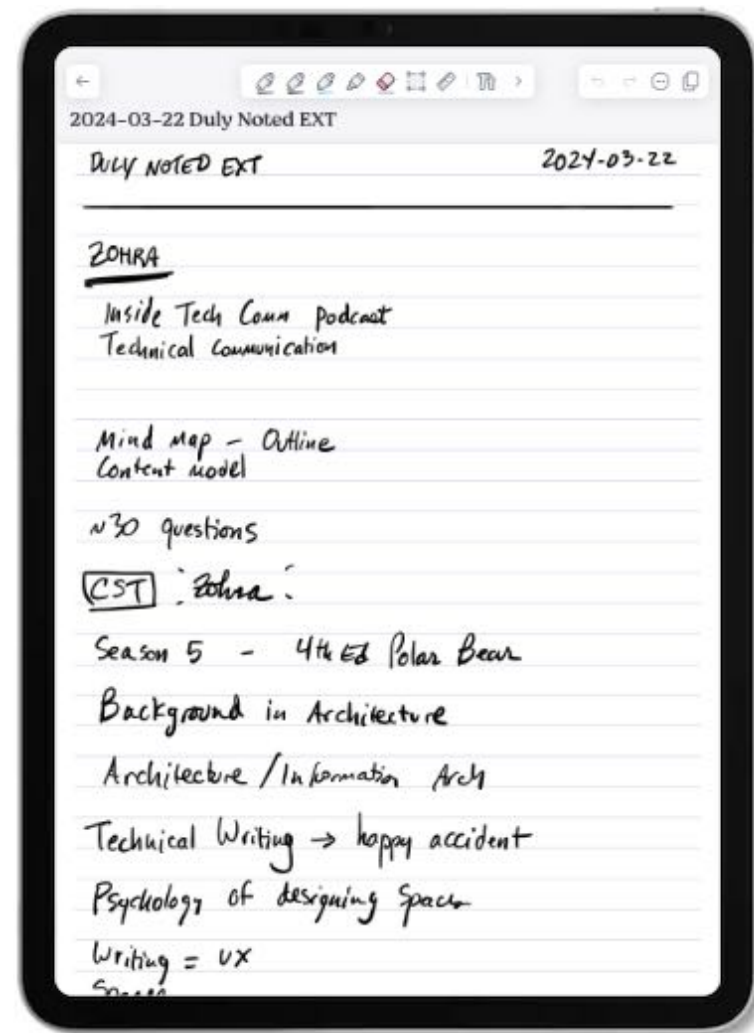 2024-03-22 Duly Noted EXT
DULY NOTED EXT 2024-03-22
ZOHRA
Inside Tech Comm Podcast
Technical Communication
Mind Map - Outline
Content model
~30 questions
CST : Zohra :
Season 5 - 4th Ed Polar Bear
Background in Architecture
Architecture / Information Arch
Technical Writing → happy accident
Psychology of designing Spaces
Writing = UX